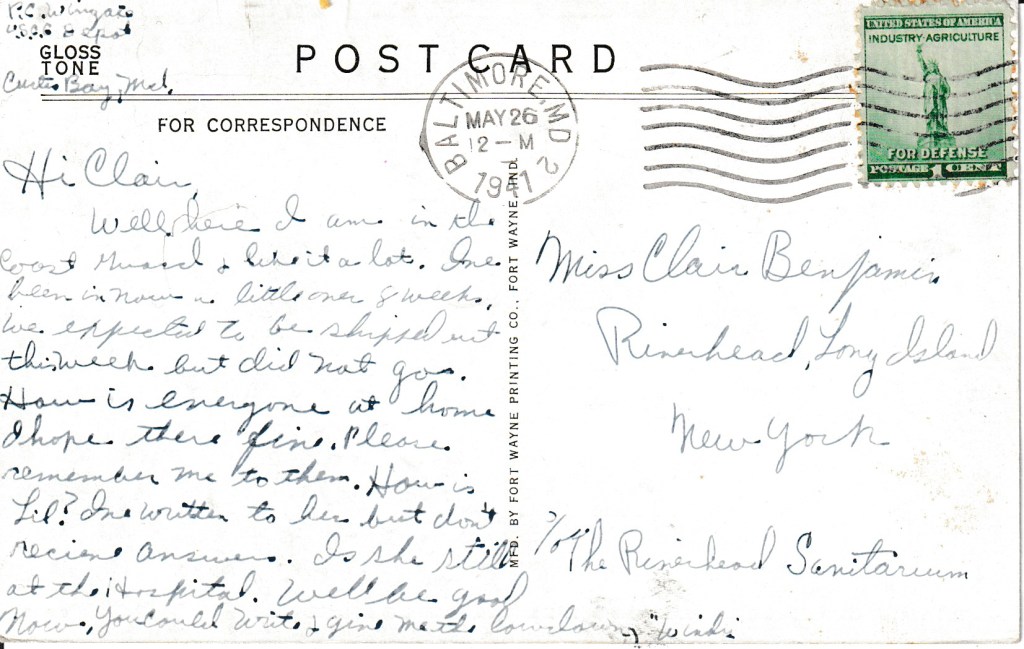 P.C. Wingate
U.S.C.G Depot
Curtis Bay, Md.
GLOSS
TONE
POST CARD
FOR CORRESPONDENCE
BALTIMORE, MD. 2
MAY 26
12 - M
1941
UNITED STATES OF AMERICA
INDUSTRY AGRICULTURE
FOR DEFENSE
POSTAGE 1 CENT
Hi Clair,
Well, here I am in the
Coast Guard & like it a lot. Ive
been in now a little over 8 weeks.
We expected to be shipped out
this week but did not go.
How is everyone at home
I hope there fine. Please
remember me to them. How is
Lil? Ive written to her but don't
recieve answers. Is she still
at the Hospital. Well be good
Now, You could write & give me the lowdown, "Windi
MFD. BY FORT WAYNE PRINTING CO., FORT WAYNE, IND.
Miss Clair Benjamin
Riverhead, Long Island
New York
c/o The Riverhead Sanitarium